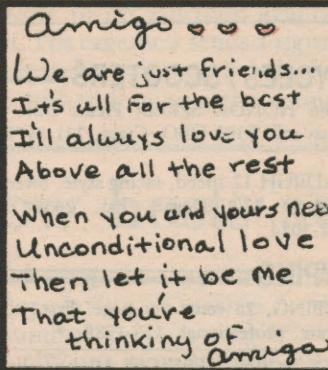 amigo
We are just friends...
It's all for the best
I'll always love you
Above all the rest
When you and yours need
Unconditional love
Then let it be me
That you're
thinking of
amiga